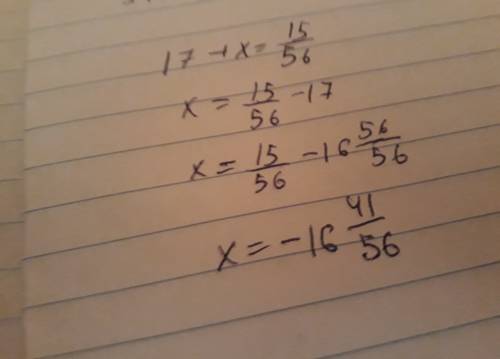 17 + x = 15/56
x = 15/56 - 17
x = 15/56 - 16 56/56
x = -16 41/56